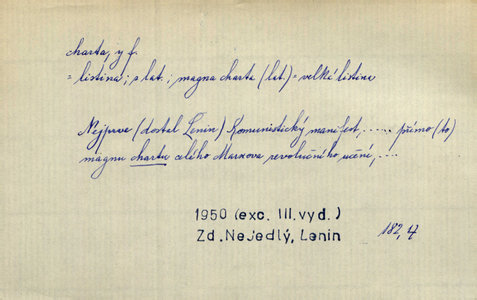 charta, y f.
= listina; s lat.; magna charta (lat.) = velké listina
Nejprve (dostal Lenin) Komunistický manifest, ..... přímo (to)
magnu chartu celého Marxova revolučního učení, ...
1950 (exc. III. vyd.)
Zd. Nejedlý, Lenin
182, 4